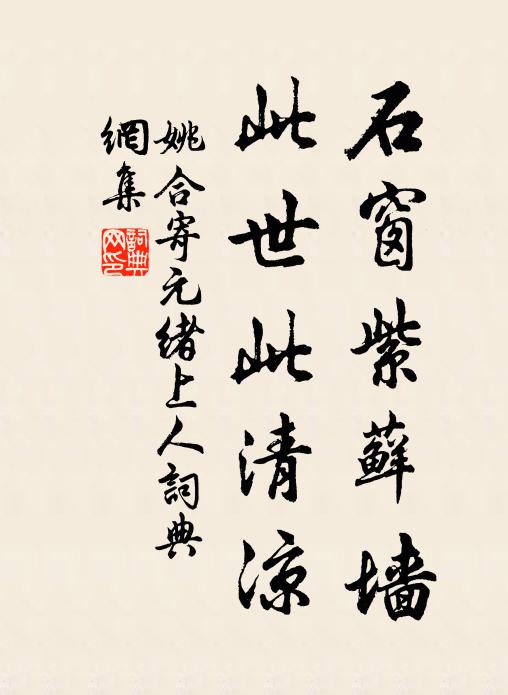 石窗紫藓墙
此世此清凉
姚合寄元绪上人詞典
網集
詞典
网印